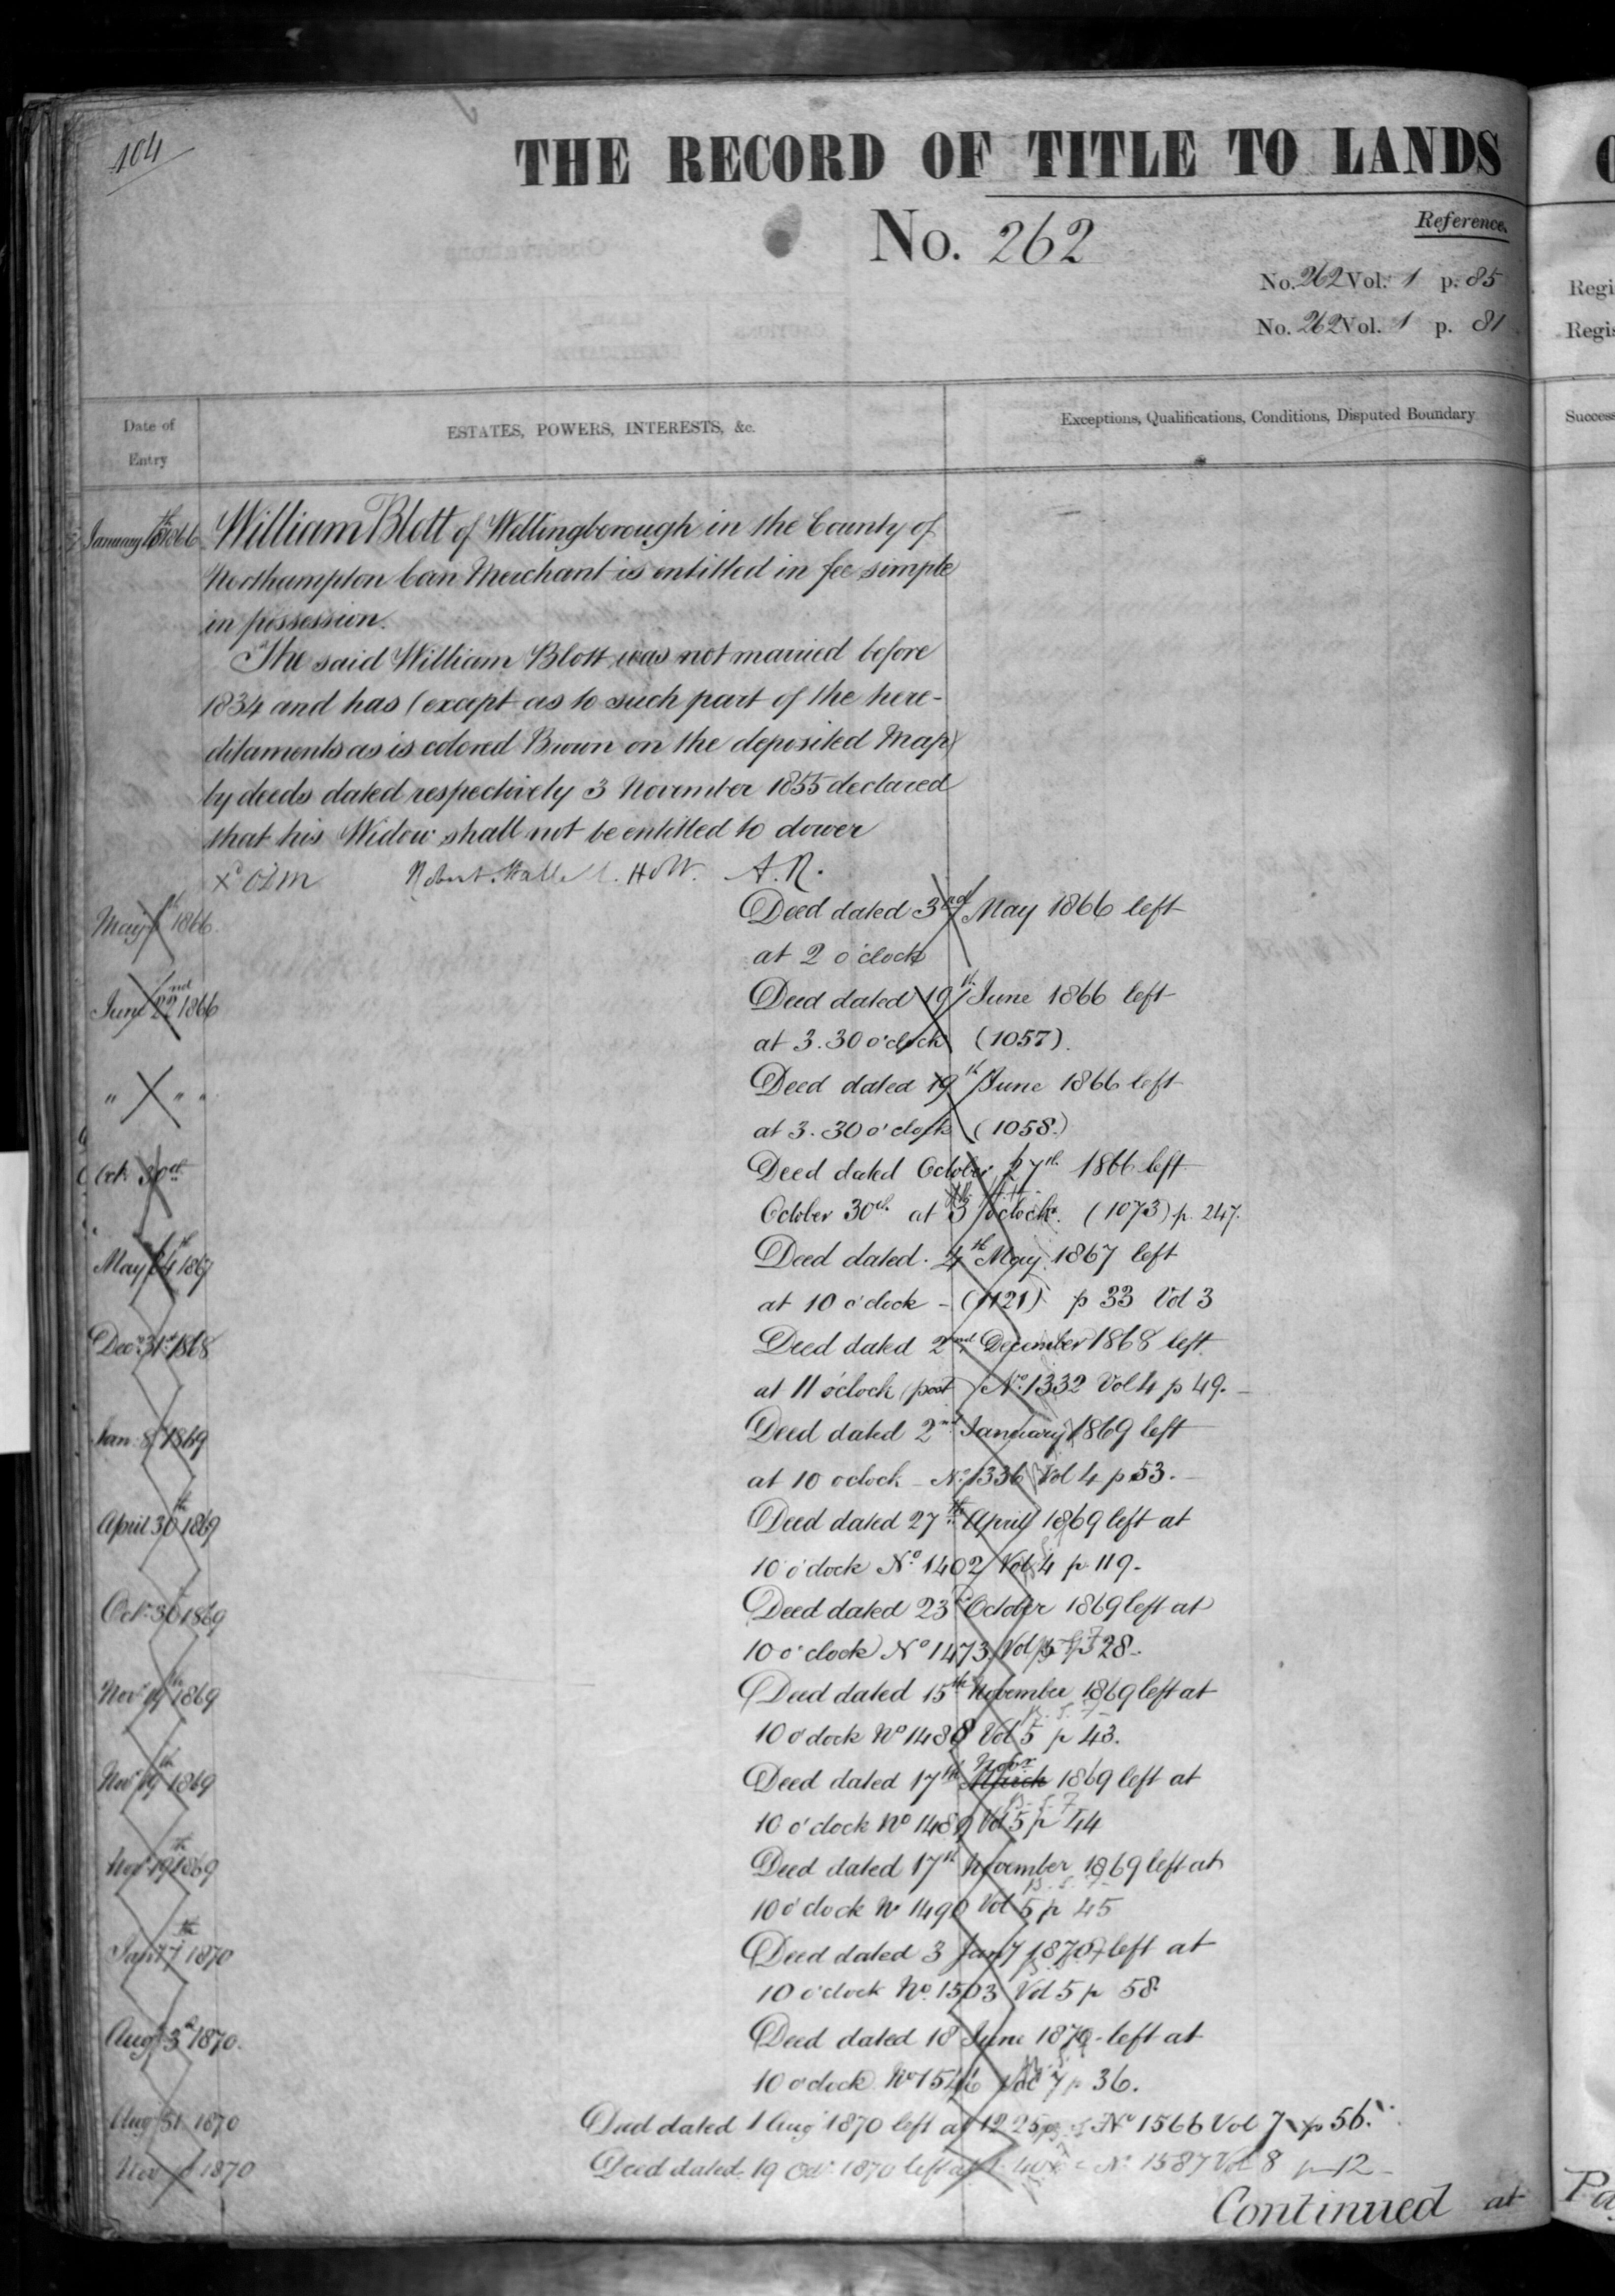 104
THE RECORD OF TITLE TO LANDS
No. 262
Reference.
No. 262 Vol. 1 p. 85
No. 262 Vol. 1 p. 81
Regi
Regis
Date of Entry
ESTATES, POWERS, INTERESTS, &c.
Exceptions, Qualifications, Conditions, Disputed Boundary
Success
January 1866
William Blott of Wellingborough in the County of
Northampton Corn Merchant is entitled in fee simple
in possession.
The said William Blott was not married before
1834 and has (except as to such part of the here-
ditaments as is colored Brown on the deposited Map)
by deeds dated respectively 3 November 1855 declared
that his Widow shall not be entitled to dower
A.R.
May 1866.
Deed dated 3rd May 1866 left
at 2 o'clock
June 22nd 1866
Deed dated 19th June 1866 left
at 3.30 o'clock (1057).
" " "
Deed dated 19th June 1866 left
at 3.30 o'clock (1058.)
Oct. 30th
Deed dated October 27th 1866 left
October 30th at 3 o'clock. (1073) p. 247.
May 1867
Deed dated 4th May 1867 left
at 10 o'clock - (1121) p 33 Vol 3
Decr. 31st 1868
Deed dated 2nd December 1868 left
at 11 o'clock (post) No. 1332 Vol 4 p 49.
Jan. 8 1869
Deed dated 2nd January 1869 left
at 10 oclock - No. 1336 Vol 4 p 53.
April 30th 1869
Deed dated 27th April 1869 left at
10 o'clock No. 1402 Vol 4 p 119.
Oct. 30 1869
Deed dated 23d October 1869 left at
10 o'clock No 1473 Vol 5 p 28.
Novr 19th 1869
Deed dated 15th November 1869 left at
10 o'clock No 1488 Vol 5 p 43.
Novr 19th 1869
Deed dated 17th Novr 1869 left at
10 o'clock No 1489 Vol 5 p 44
Novr 19th 1869
Deed dated 17th November 1869 left at
10 o'clock No 1490 Vol 5 p 45
Jany 7th 1870
Deed dated 3 Jany 1870 left at
10 o'clock No. 1503 Vol 5 p 58.
Augt 3d 1870.
Deed dated 18 June 1870 left at
10 o'clock No 1546 Vol 7 p 36.
Aug 31 1870
Deed dated 1 Aug 1870 left at 12.25 No 1566 Vol 7 p 56.
Nov 1870
Deed dated 19 Oct. 1870 left at No. 1587 Vol 8 p 12
Continued at